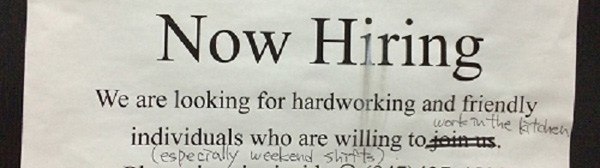 Now Hiring
We are looking for hardworking and friendly
work in the kitchen
individuals who are willing to join us.
(especially weekend shifts)